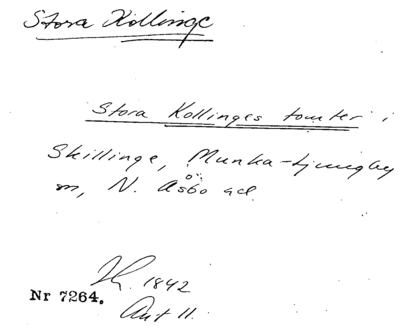 Stora Kollinge
Stora Kollinges tomter i
Skillinge, Munka-Ljungby
N. Åsbo
1842
Nr 7264.
Akt 11.